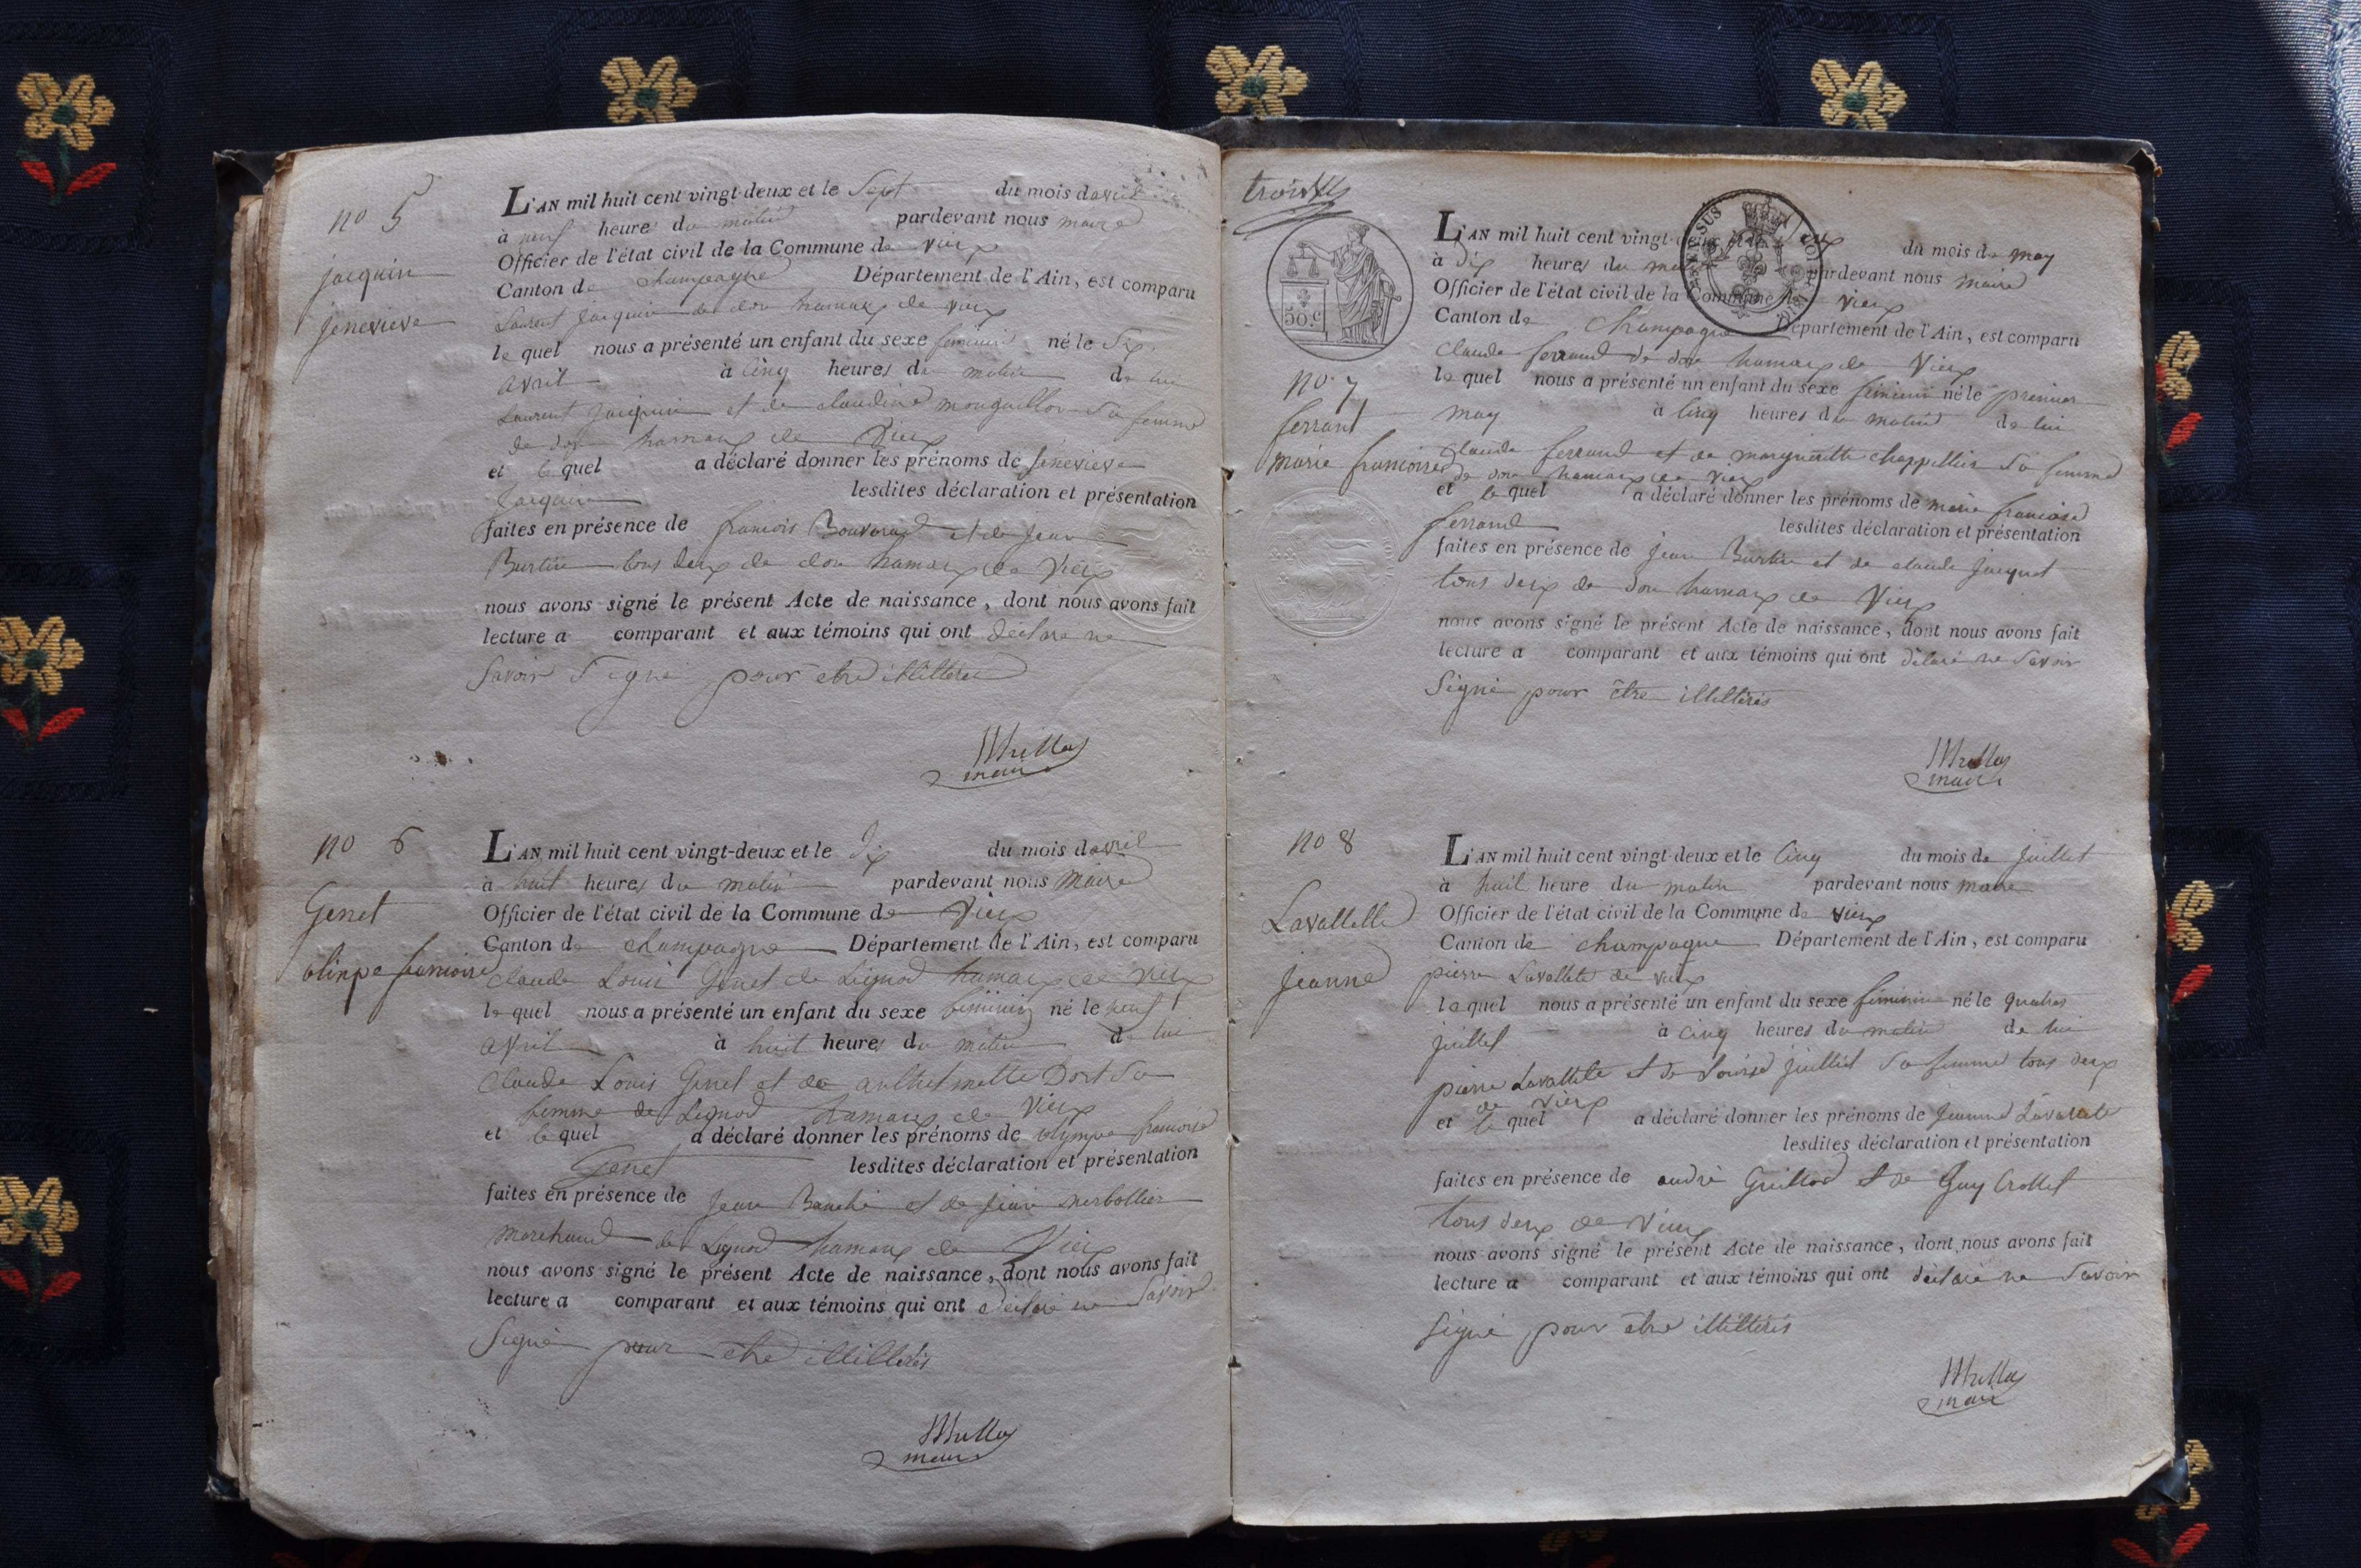 no 5
jacquin
jenevieve
L'AN mil huit cent vingt-deux et le Sept du mois davril
à neuf heures du matin pardevant nous maire
Officier de l'état civil de la Commune de vieux
Canton de champagne Département de l'Ain, est comparu
Laurent jacquin de don hamaux de vieux
le quel nous a présenté un enfant du sexe feminin né le Six
avril à cinq heures du matin de lui
Laurent jacquin et de claudine Sa femme
de don hamaux de vieux
et le quel a déclaré donner les prénoms de jenevieve
Jacquin lesdites déclaration et présentation
faites en présence de francois Bouvard et de jean
Burtin tous deux de don hamaux de vieux
nous avons signé le présent Acte de naissance, dont nous avons fait
lecture a comparant et aux témoins qui ont déclaré ne
Savoir Signé pour etre illittéré
maire
no 6
Genet
olinpe francoise
L'AN mil huit cent vingt-deux et le dix du mois davril
à huit heures du matin pardevant nous Maire
Officier de l'état civil de la Commune de Vieux
Canton de champagne Département de l'Ain, est comparu
Claude Louis Genet de Lignod hamaux de vieux
le quel nous a présenté un enfant du sexe feminin né le neuf
avril à huit heures du matin de lui
Claude Louis Genet et de Dort Sa
femme de Lignod hamaux de Vieux
et le quel a déclaré donner les prénoms de olympe francoise
Genet lesdites déclaration et présentation
faites en présence de Jean et de jean
marchand de Lignod hamaux de Vieux
nous avons signé le présent Acte de naissance, dont nous avons fait
lecture a comparant et aux témoins qui ont déclaré ne Savoir
Signé pour etre illitterés
maire
trois
50.c
no 7
ferrant
marie francoise
L'AN mil huit cent vingt-deux et le deux du mois de may
à dix heures du matin pardevant nous maire
Officier de l'état civil de la Commune de vieux
Canton de Champagne Département de l'Ain, est comparu
Claude ferrand de don hamaux de Vieux
le quel nous a présenté un enfant du sexe feminin né le premier
may à cinq heures du matin de lui
claude ferrand et de margueritte chappellier Sa femme
de don hamaux de vieux
et le quel a déclaré donner les prénoms de marie francoise
ferrand lesdites déclaration et présentation
faites en présence de jean Burtin et de claude jacquet
tous deux de don hamaux de Vieux
nous avons signé le présent Acte de naissance, dont nous avons fait
lecture a comparant et aux témoins qui ont déclaré ne Savoir
Signé pour être illitterés
maire
no 8
Lavallette
jeanne
L'AN mil huit cent vingt-deux et le Cinq du mois de juillet
à huit heure du matin pardevant nous maire
Officier de l'état civil de la Commune de vieux
Canton de champagne Département de l'Ain, est comparu
pierre Lavallete de vieux
le quel nous a présenté un enfant du sexe feminin né le quatres
juillet à cinq heures du matin de lui
pierre Lavallete et de Louise juilliet Sa femme tous deux
de vieux
et le quel a déclaré donner les prénoms de jeanne Lavalete
lesdites déclaration et présentation
faites en présence de andré Guillod et de Guy Crollet
tous deux de Vieux
nous avons signé le présent Acte de naissance, dont nous avons fait
lecture a comparant et aux témoins qui ont déclaré ne Savoir
Signé pour etre illitterés
maire